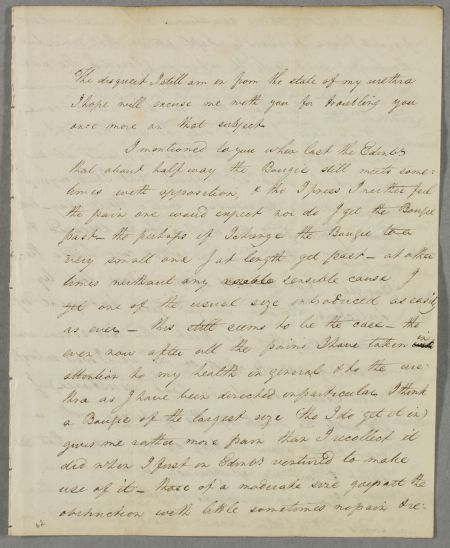 The disquiet I still am in from the state of my urethra
I hope will excuse me with you for troubling you
once more on that subject
I mentioned to you when last the Edinbr
that about half way the Bougie still meets some-
times with opposition, & tho' I press I neither feel
the pain one would expect nor do I get the Bougie
past – tho perhaps if I change the Bougie to a
very small one I at length get past – at other
times without any sensible cause I
get one of the usual size introduced as easily
as ever – this still seems to be the case – tho
even now after all the pains I have taken in
attention to my health in general & to the ure-
thra as I have been directed in particular I think
a Bougie of the largest size (tho I do get it in)
gives me rather more pain than I recollect it
did when I first in Edinbr ventured to make
use of it – those of a moderate size get past the
obstruction with little sometimes no pain & re-